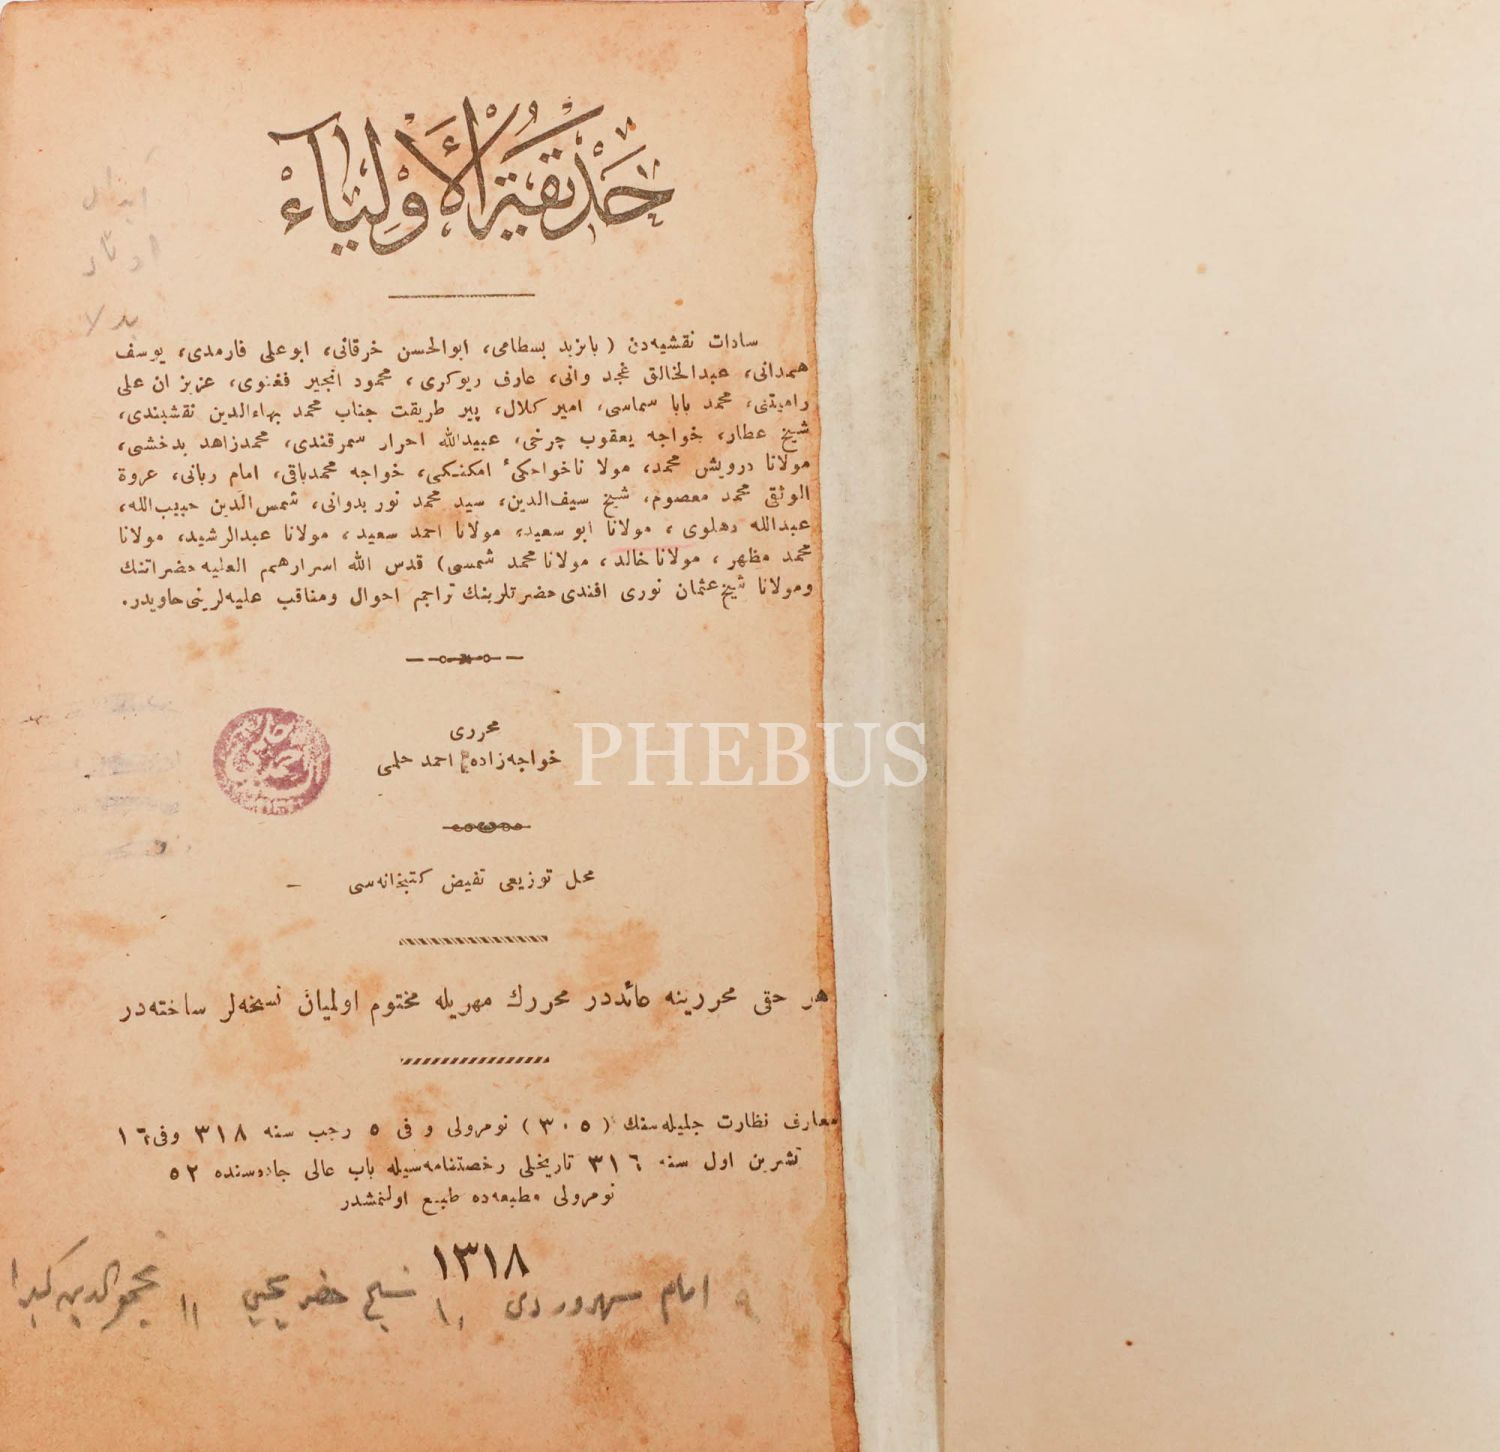 حديقة الأولياء
سادات نقشيه‌دن (بايزيد بسطامى، ابوالحسن خرقانى، ابو على فارمدى، يوسف
همدانى، عبدالخالق غجد وانى، عارف ريوكرى، محمود انجير فغنوى، عزيزان على
راميتنى، محمد بابا سماسى، امير كلال، پير طريقت جناب محمد بهاءالدين نقشبندى،
شيخ عطار، خواجه يعقوب چرخى، عبيدالله احرار سمرقندى، محمدزاهد بدخشى،
مولانا درويش محمد، مولا ناخواجكىء امكنكى، خواجه محمدباقى، امام ربانى، عروة
الوثقى محمد معصوم، شيخ سيف‌الدين، سيد محمد نور بدوانى، شمس‌الدين حبيب‌الله،
عبدالله دهلوى، مولانا ابو سعيد، مولانا احمد سعيد، مولانا عبدالرشيد، مولانا
محمد مظهر، مولانا خالد، مولانا محمد شمسى) قدس الله اسرارهم العليه حضراتنك
ومولانا شيخ عثمان نورى افندى حضرتلرينك تراجم احوال ومناقب عليه‌لرينى حاويدر.
محررى
خواجه‌زاده احمد حلمى
PHEBUS
محل توزيعى تفيض كتبخانه‌سى
هر حقى محررينه عائددر محررك مهريله مختوم اولميان نسخه‌لر ساخته‌در
معارف نظارت جليله‌سنك (٣٠٥) نومرولى و فى ٥ رجب سنه ٣١٨ وفى ١٦
تشرين اول سنه ٣١٦ تاريخلى رخصتنامه‌سيله باب عالى جاده‌سنده ٥٢
نومرولى مطبعه‌ده طبع اولنمشدر
١٣١٨
٩ امام سهروردى ١٠ شيخ خضر يحيى ١١ نجم الدين كبرا